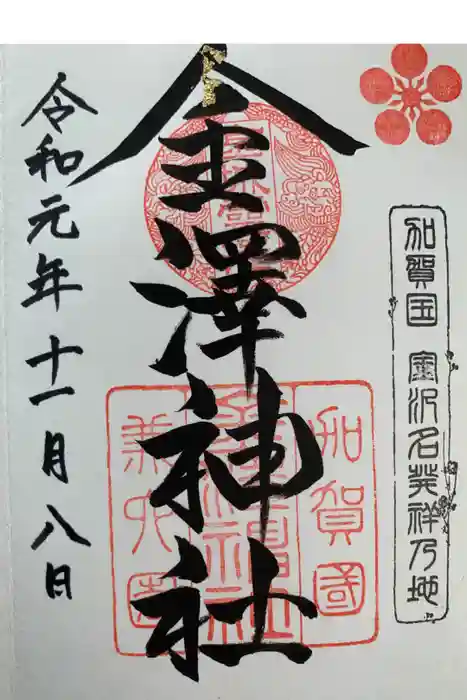 加賀国 金沢名発祥乃地
金澤神社
加賀國
金澤神社
兼六園
令和元年十一月八日